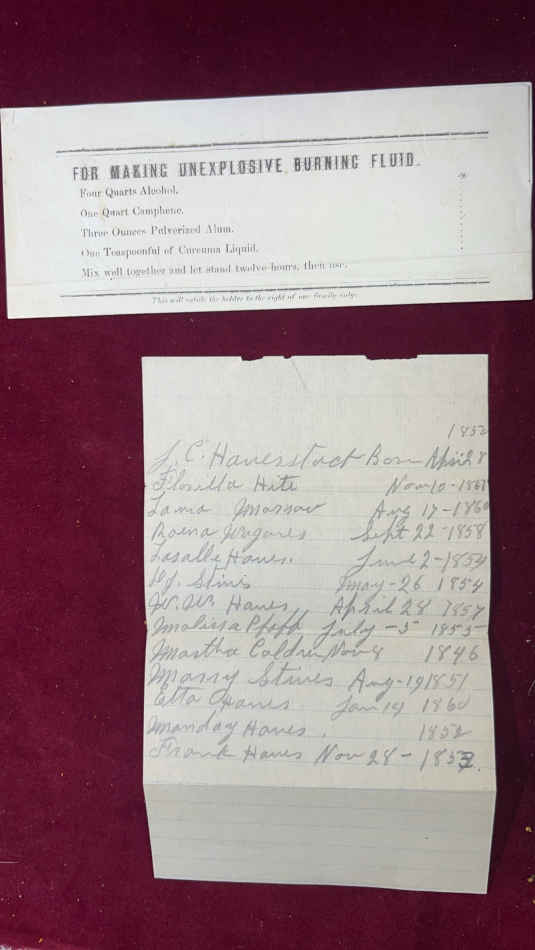 FOR MAKING UNEXPLOSIVE BURNING FLUID.
Four Quarts Alcohol.
One Quart Camphene.
Three Ounces Pulverized Alum.
One Teaspoonful of Curcuma Liquid.
Mix well together and let stand twelve hours, then use.
This will entitle the holder to the right of one family only.
1852
J. C. Haverstock Born April 28
Florilla Hite Nov 10-1861
Aug 17-1860
Roena Sept 22-1858
Lasalle Hanes. June 2-1854
Stines May-26 1854
W. W. Hanes, April 28 1857
Malissa July-5 1855
Martha Nov 8 1846
Marry Stines Aug-19 1851
Etta Hanes Jan 14 1860
Manday Hanes. 1852
Frank Hanes Nov 28-1852.